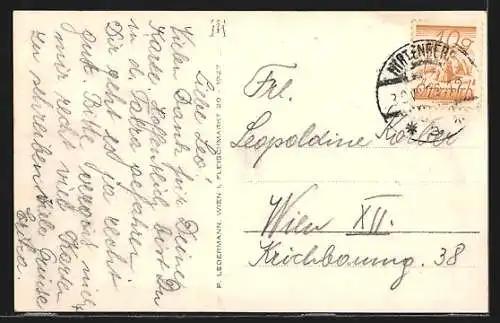 Liebe Leo!
Vielen Dank für Deine
Karte. Hoffentlich bist Du
in d. Tatra gefahren
Dir geht es ja recht
gut. Bitte vergiß nicht
mir recht viele Karten
zu schreiben. Viele Grüße
P. LEDERMANN, WIEN I, FLEISCHMARKT 20 1927
10g
HIRTENBERG
Frl.
Leopoldine
Wien XII.
Krichbaumg. 38